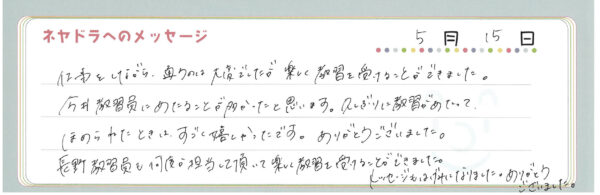 ネヤドラへのメッセージ
5月15日
仕事をしながら、通うのは大変でしたが楽しく教習を受けることができました。
今井教習員にあたることが多かったと思います。久しぶりに教習があたって、
ほめられたときは、すごく嬉しかったです。ありがとうございました。
長野教習員も何度か担当して頂いて楽しく教習を受けることができました。
メッセージもはげみになりました。ありがとう
ございました。